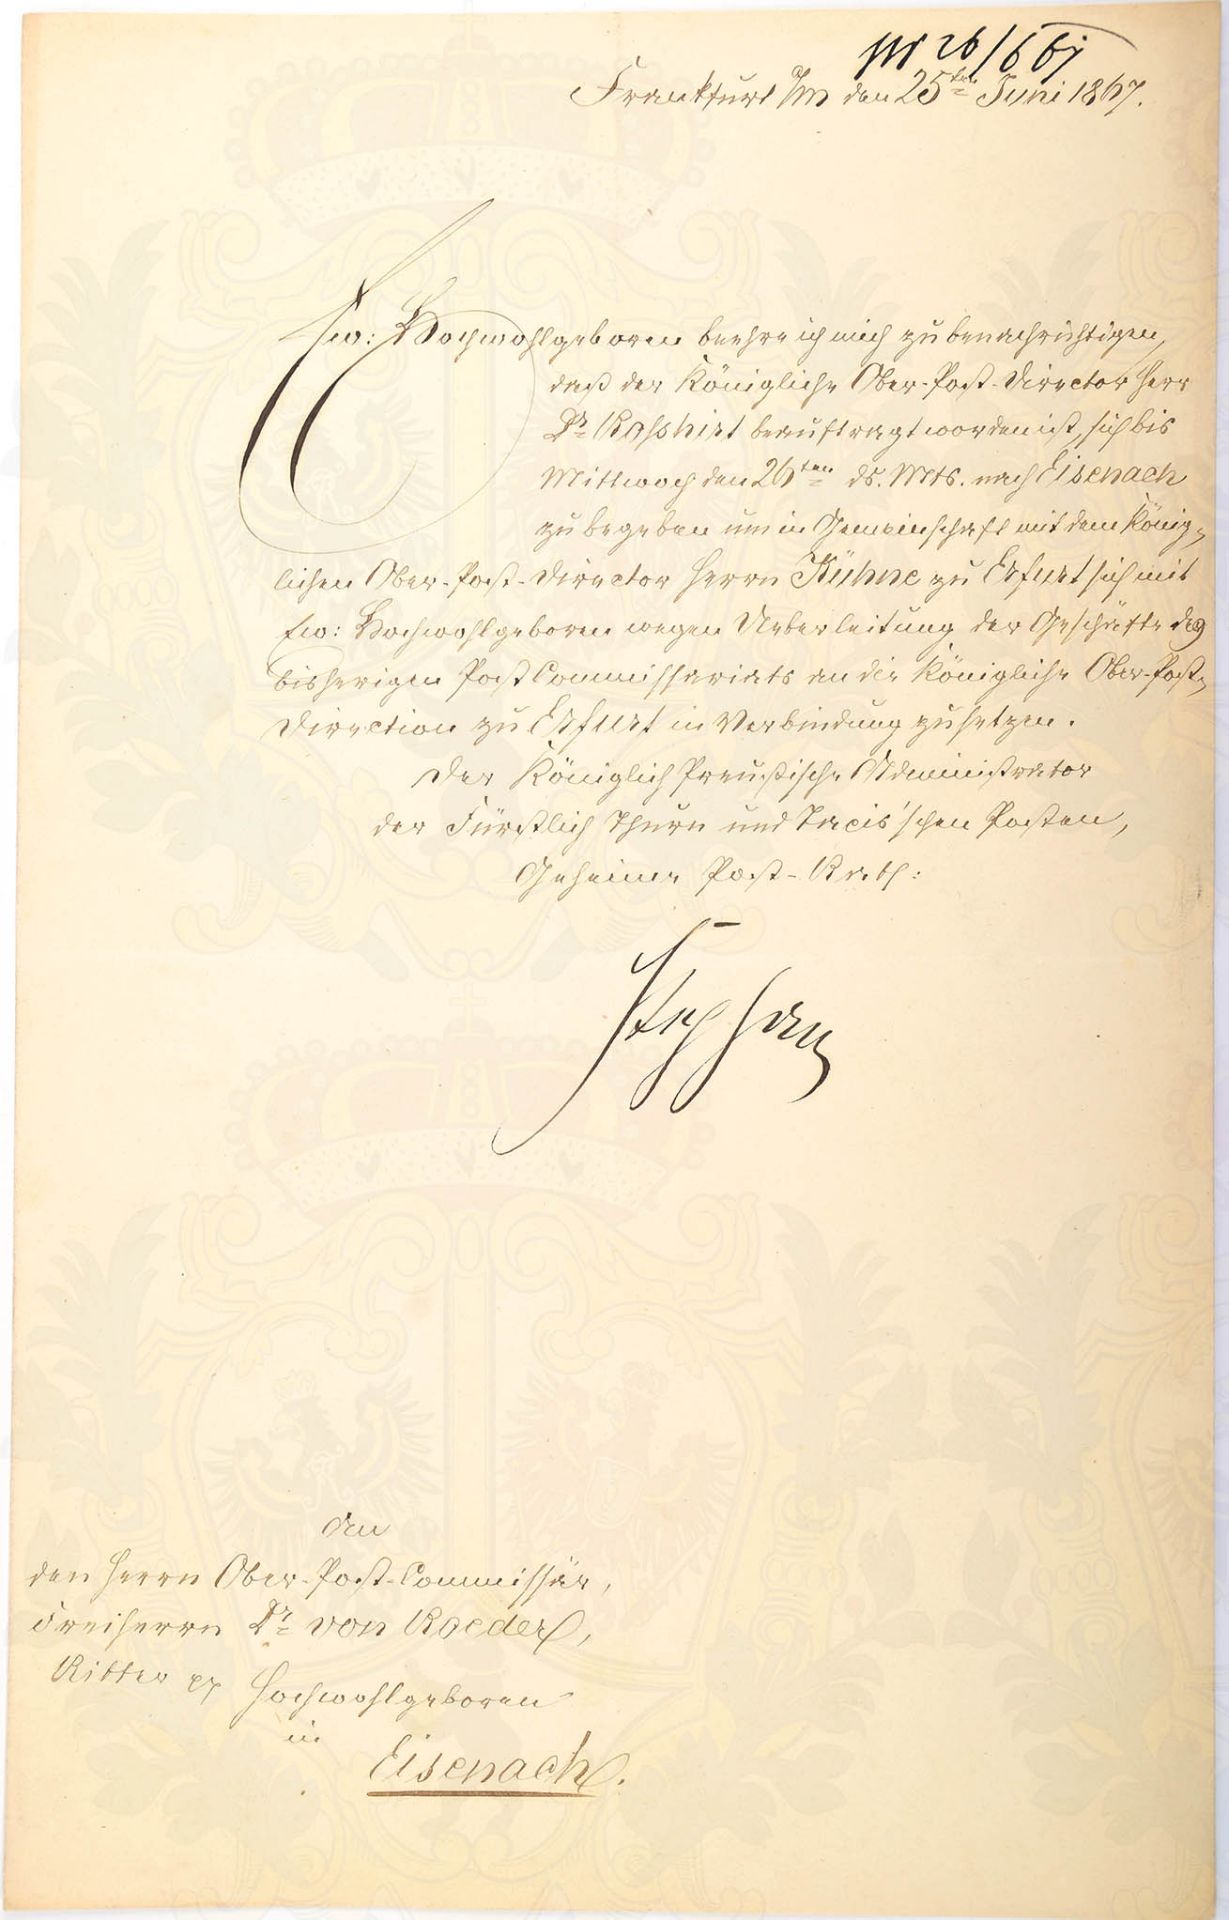 26/6 67
Frankfurt a/m den 25ten Juni 1867.
Ew: Hochwohlgeboren beehre ich mich zu benachrichtigen,
daß der Königliche Ober-Post-Director Herr
Dr Rosshirt beauftragt worden ist, sich bis
Mittwoch den 26ten ds. Mts. nach Eisenach
zu begeben um in Gemeinschaft mit dem König-
lichen Ober-Post-Director Herrn Kühne zu Erfurt sich mit
Ew: Hochwohlgeboren wegen Ueberleitung der Geschäfte des
bisherigen Post Commissariats an die Königliche Ober-Post-
Direction zu Erfurt in Verbindung zu setzen.
Der Königlich Preußische Administrator
der Fürstlich Thurn und Taxis'schen Posten,
Geheime Post-Rath:
Stephan
An
den Herrn Ober-Post-Commissär,
Freiherrn Dr von Roeder,
Ritter pp Hochwohlgeboren
in
Eisenach.